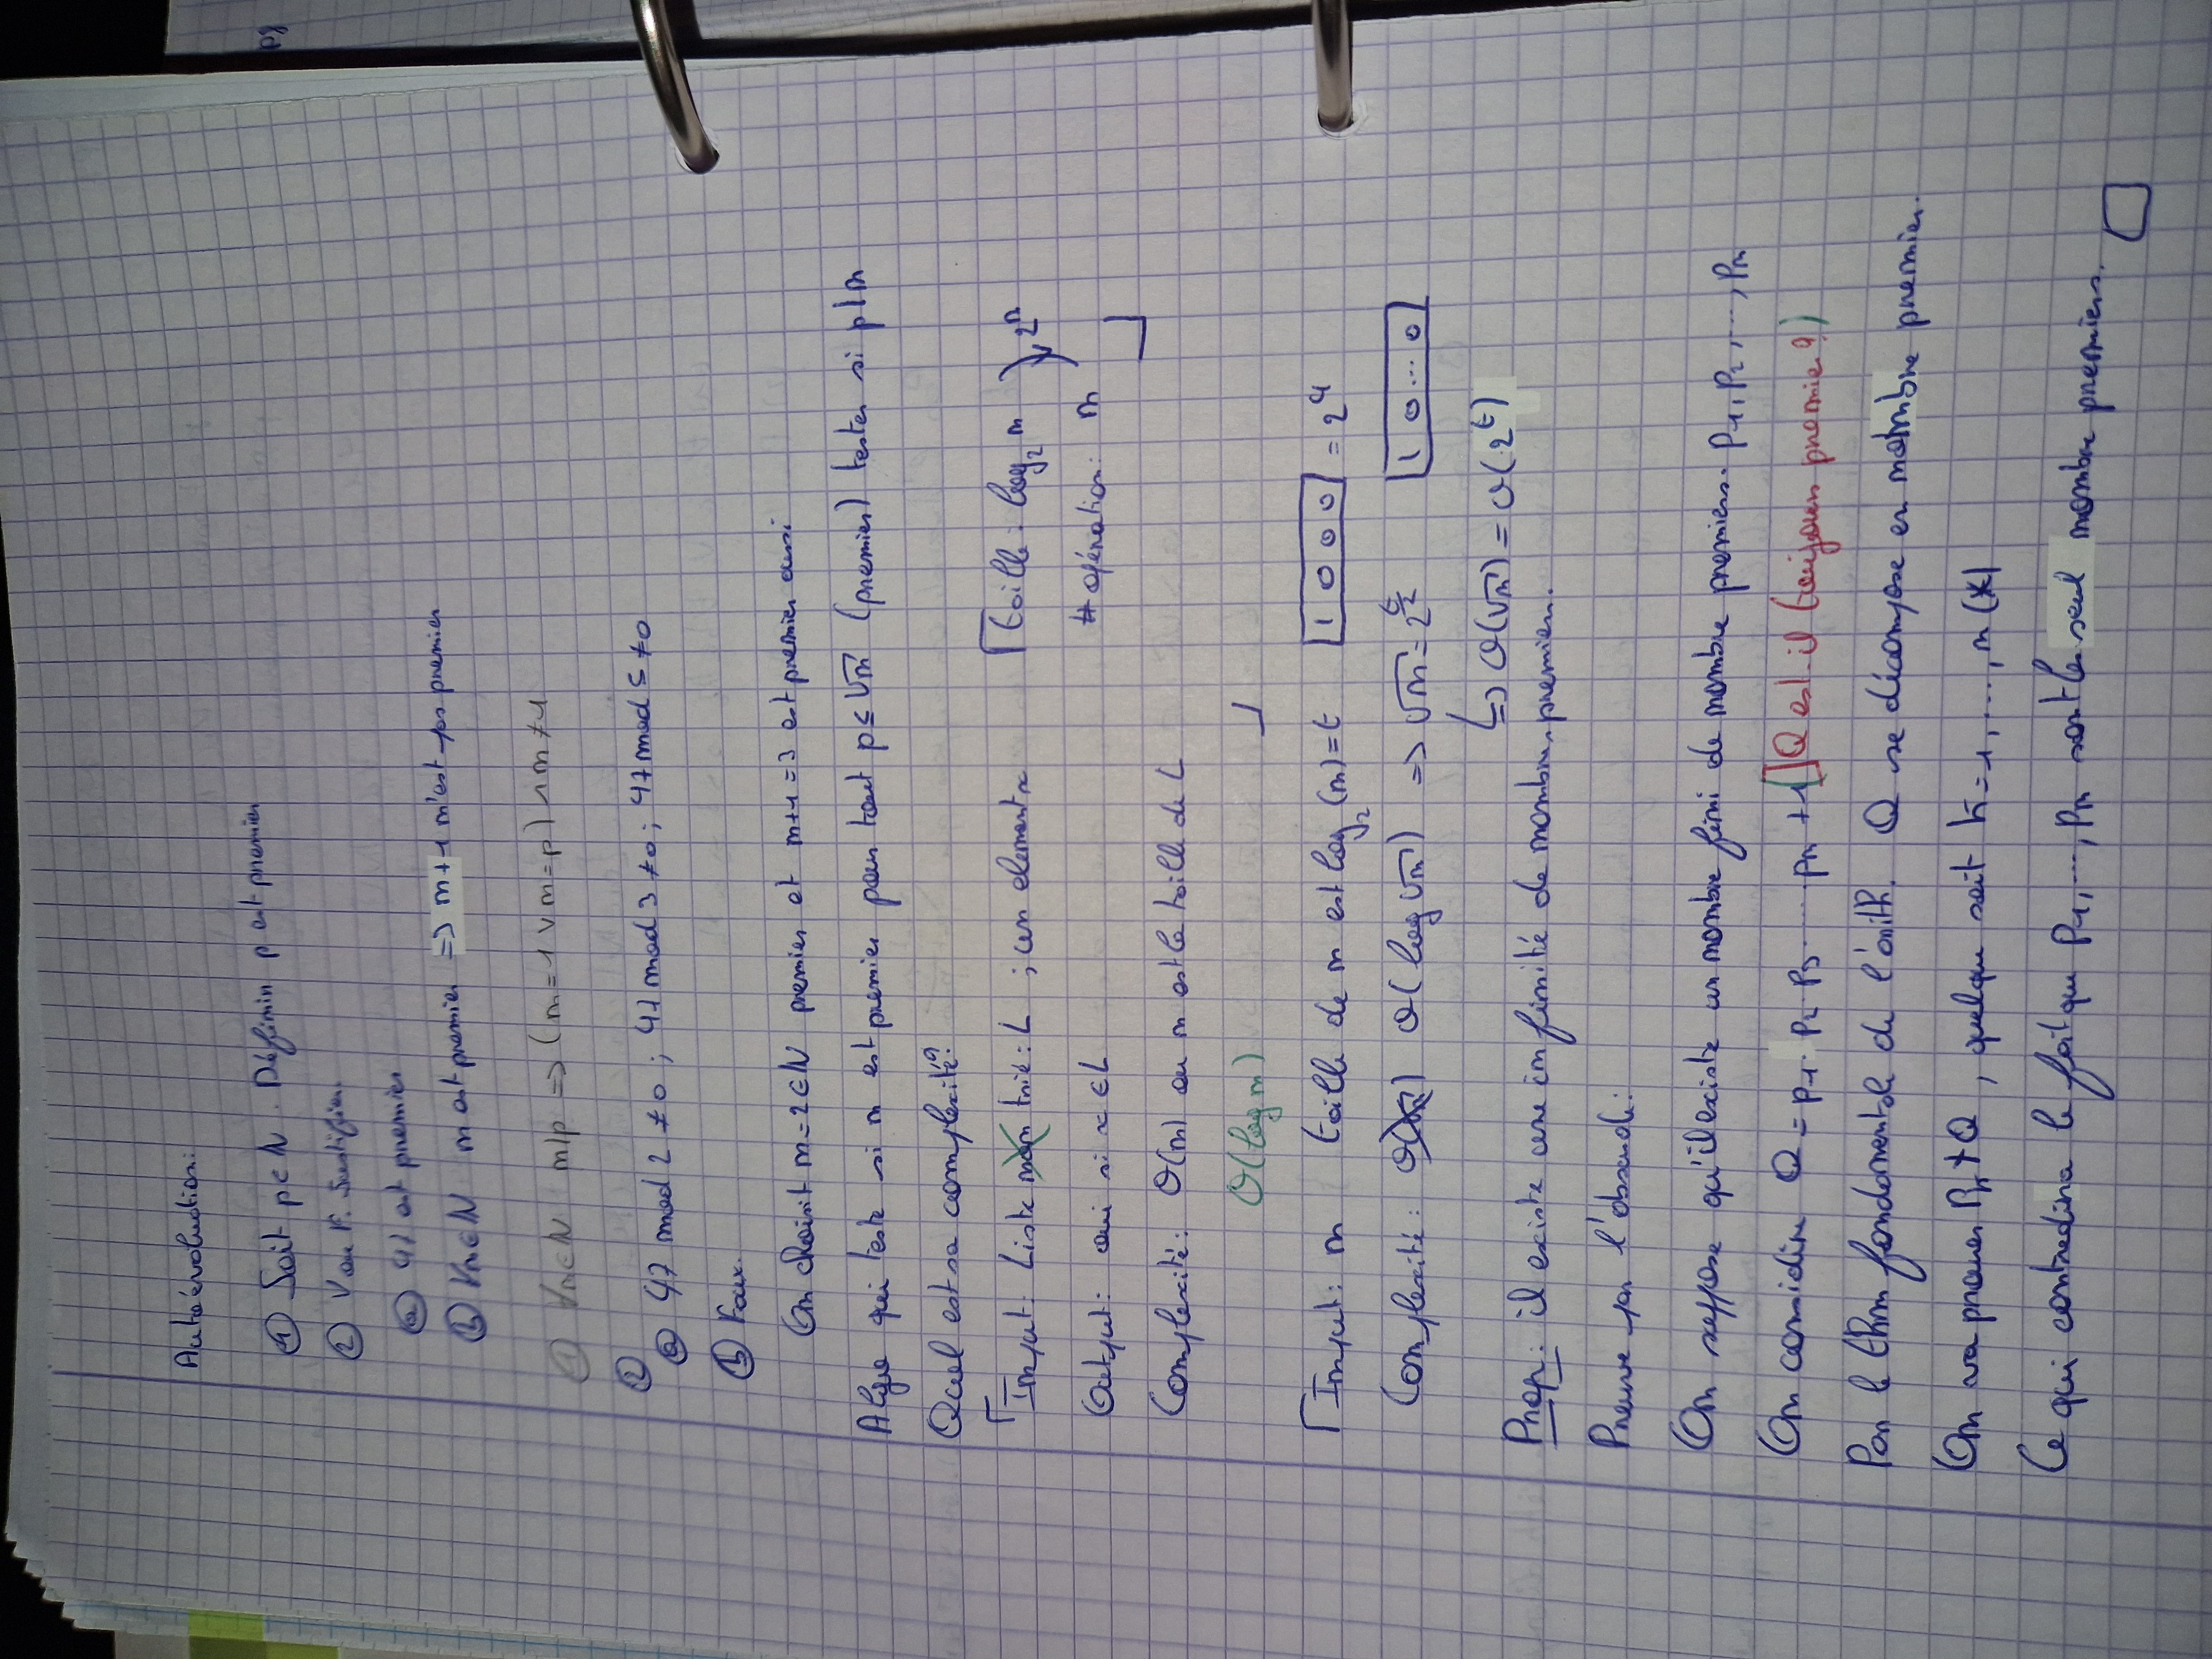 Autoévaluation:
① Soit p∈ℕ. Définir p est premier
② V ou F. Justifier.
ⓐ 47 est premier
ⓑ ∀n∈ℕ n est premier => n+1 n'est pas premier
① ∀n∈ℕ n|p => (n=1 ∨ n=p) ∧ n≠1
②
ⓐ 47 mod 2 ≠0 ; 47 mod 3 ≠0 ; 47 mod 5 ≠0
ⓑ Faux.
On choisit n=2∈ℕ premier et n+1=3 est premier aussi
Algo qui teste si n est premier pour tout p≤√n (premier) tester si p|n
Quel est sa complexité?
Input: Liste non trié: L ; un element x
taille: log₂ n 2ⁿ
Output: oui si x∈L
# opération: n
Complexité: O(n) ou n est la taille de L
O(log n)
Input: n taille de n est log₂(n)=t 1 0 0 0 = 2⁴
Complexité: O(√n) O(log √n) => √n = 2^(t/2) 1 0...0
↳ O(√n) = O(2^t)
Prop: il existe une infinité de nombres premiers.
Preuve par l'absurde:
On suppose qu'il existe un nombre fini de nombre premiers. p₁, p₂, ..., pₙ
On considère Q = p₁. p₂. p₃. .... pₙ +1 (Q est-il toujours premier?)
Par le thm fondamentale de l'arith. Q se décompose en nombre premier.
On va prouver Pₖ∤Q, quelque soit k=1,...,n (*)
Ce qui contredira le fait que p₁,...,pₙ sont les seul nombre premiers. □